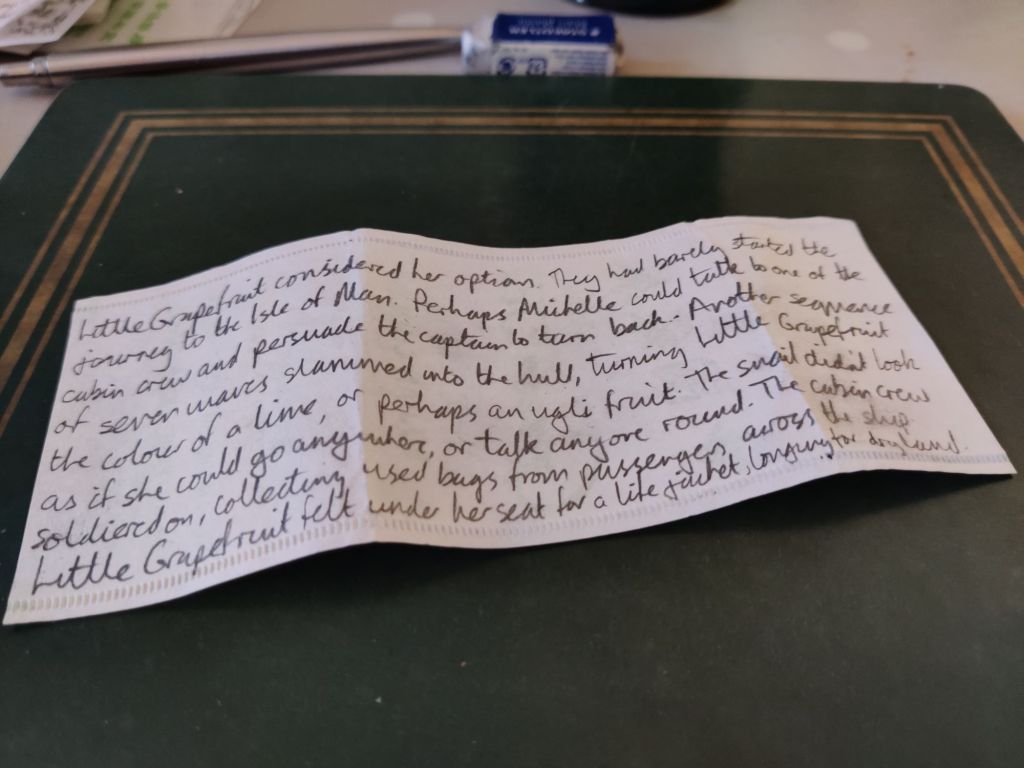 STAEDTLER
Little Grapefruit considered her option. They had barely started the
journey to the Isle of Man. Perhaps Michelle could talk to one of the
cabin crew and persuade the captain to turn back. Another sequence
of seven waves slammed into the hull, turning Little Grapefruit
the colour of a lime, or perhaps an ugli fruit. The snail didn't look
as if she could go anywhere, or talk anyone round. The cabin crew
soldiered on, collecting used bags from passengers across the ship.
Little Grapefruit felt under her seat for a life jacket, longing for dry land.